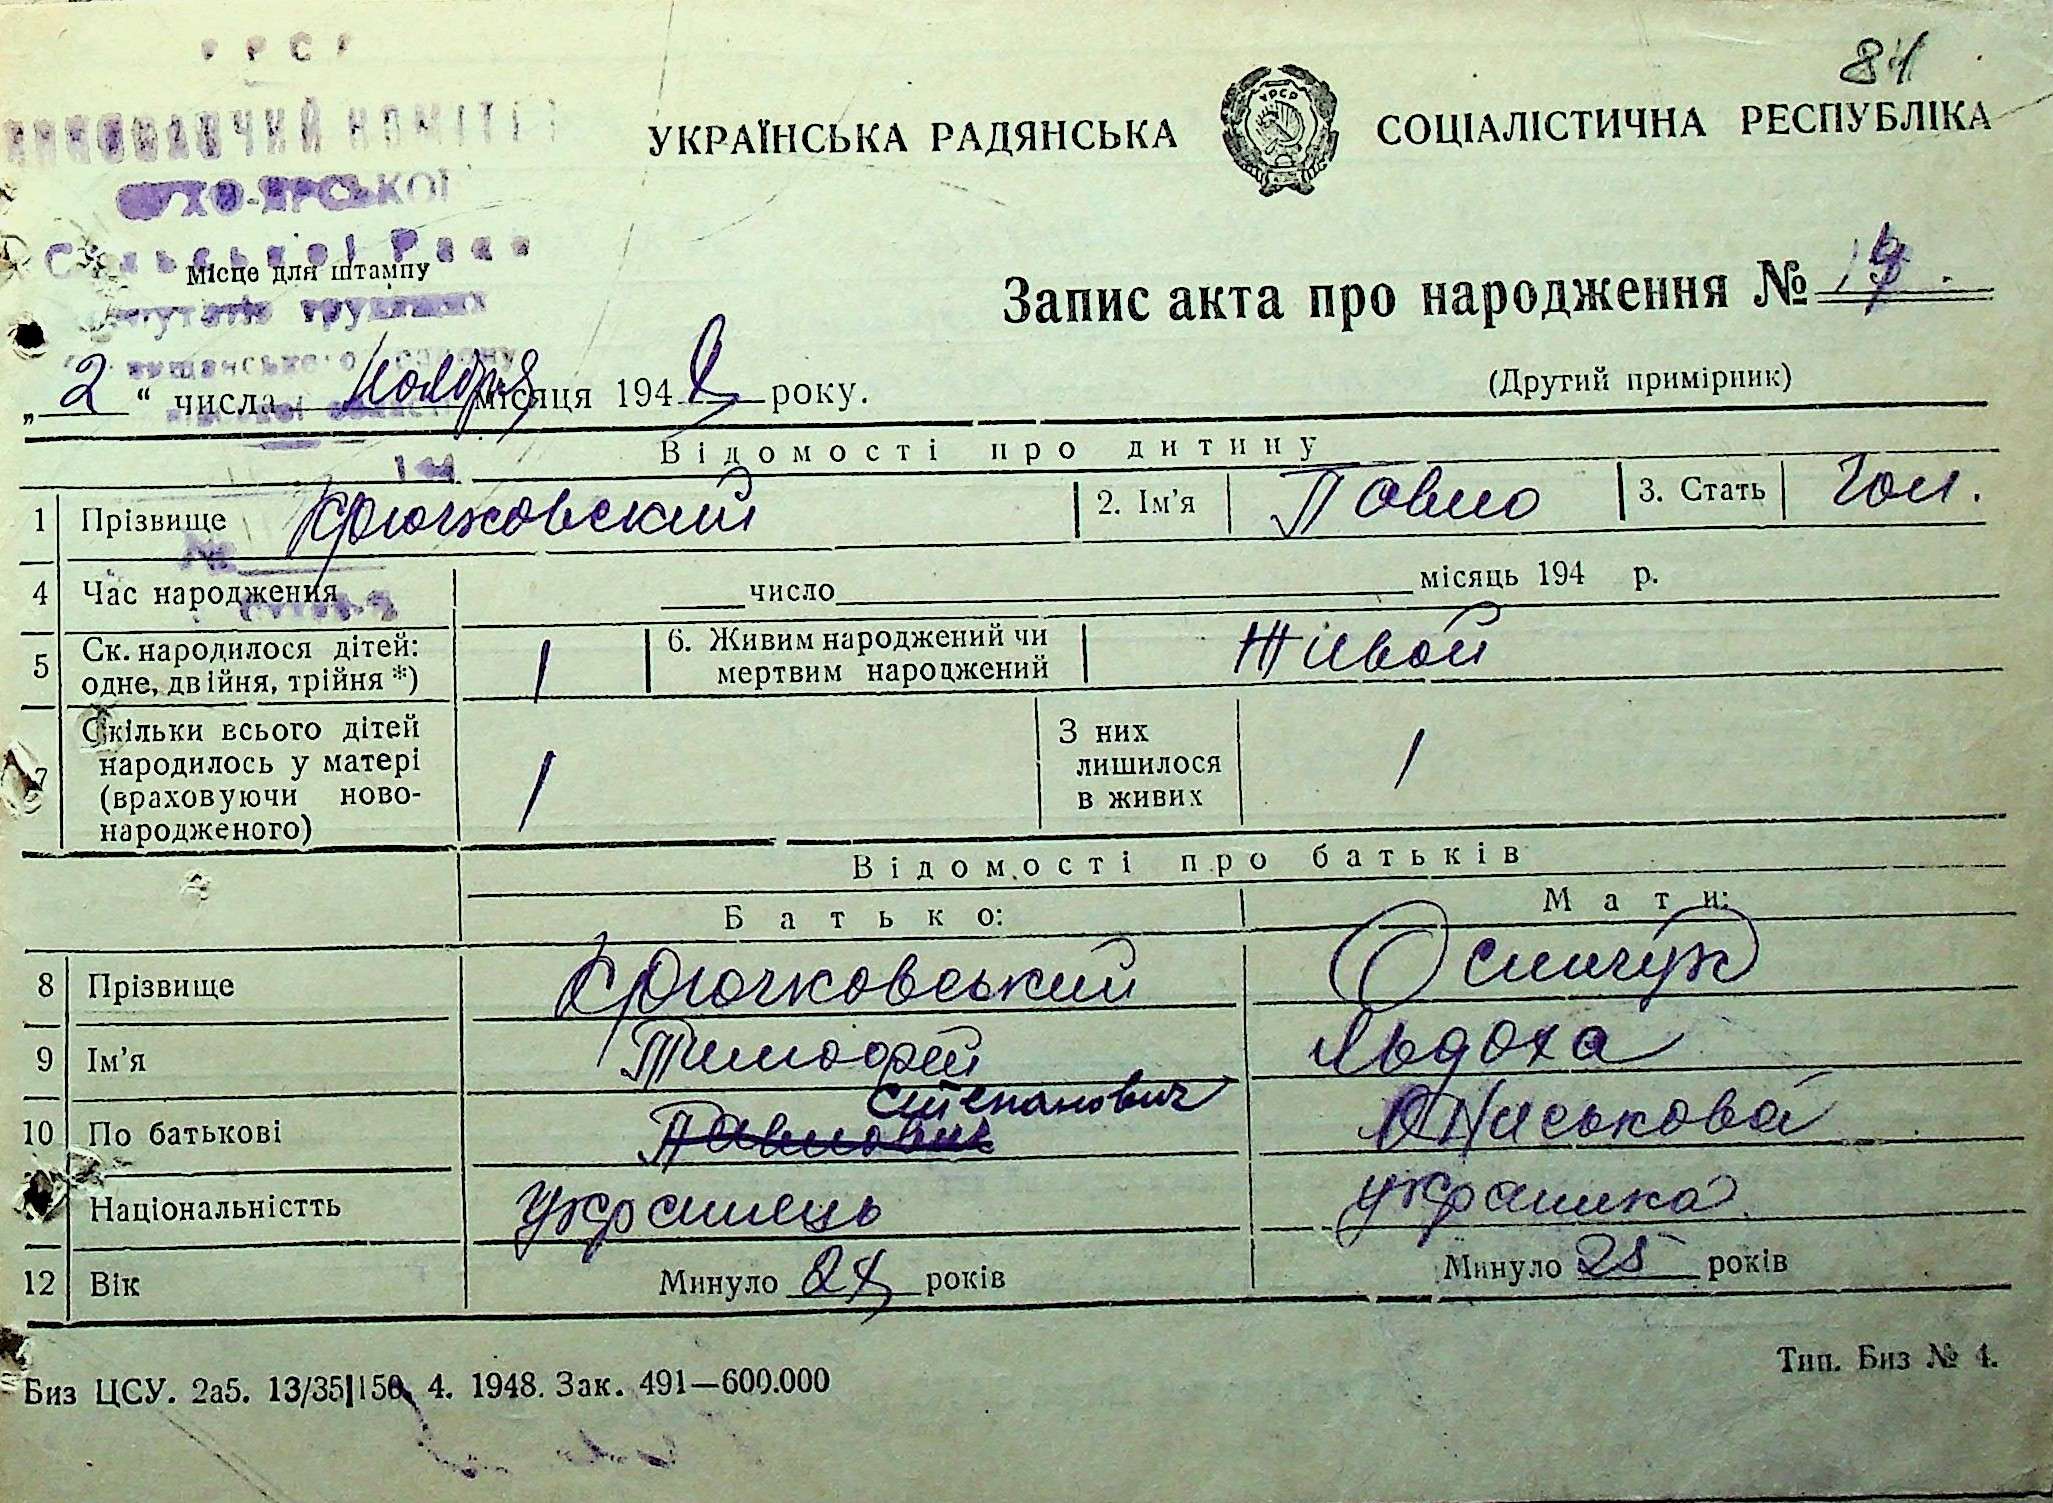 81
УРСР
ВИКОНАВЧИЙ КОМІТЕТ
СУХО-ЯРСЬКОЇ
Сільської Ради
УКРАЇНСЬКА РАДЯНСЬКА СОЦІАЛІСТИЧНА РЕСПУБЛІКА
Місце для штампу
Запис акта про народження №
„2“ числа ноября місяця 194 року.
(Другий примірник)
Відомості про дитину
1 Прізвище Крючковский 2. Ім'я Павло 3. Стать чол.
4 Час народження число місяць 194 р.
5 Ск. народилося дітей: одне, двійня, трійня *) 1 6. Живим народжений чи мертвим народжений Живой
7 Скільки всього дітей народилось у матері (враховуючи ново-народженого) 1 З них лишилося в живих 1
Відомості про батьків
Батько: Мати:
8 Прізвище Крючковський Осипчук
9 Ім'я Тимофей Явдоха
10 По батькові Павлович Степанович Опаськова
Національністть Українець українка
12 Вік Минуло років Минуло 25 років
Биз ЦСУ. 2а5. 13/35|150, 4. 1948. Зак. 491—600.000
Тип. Биз № 4.